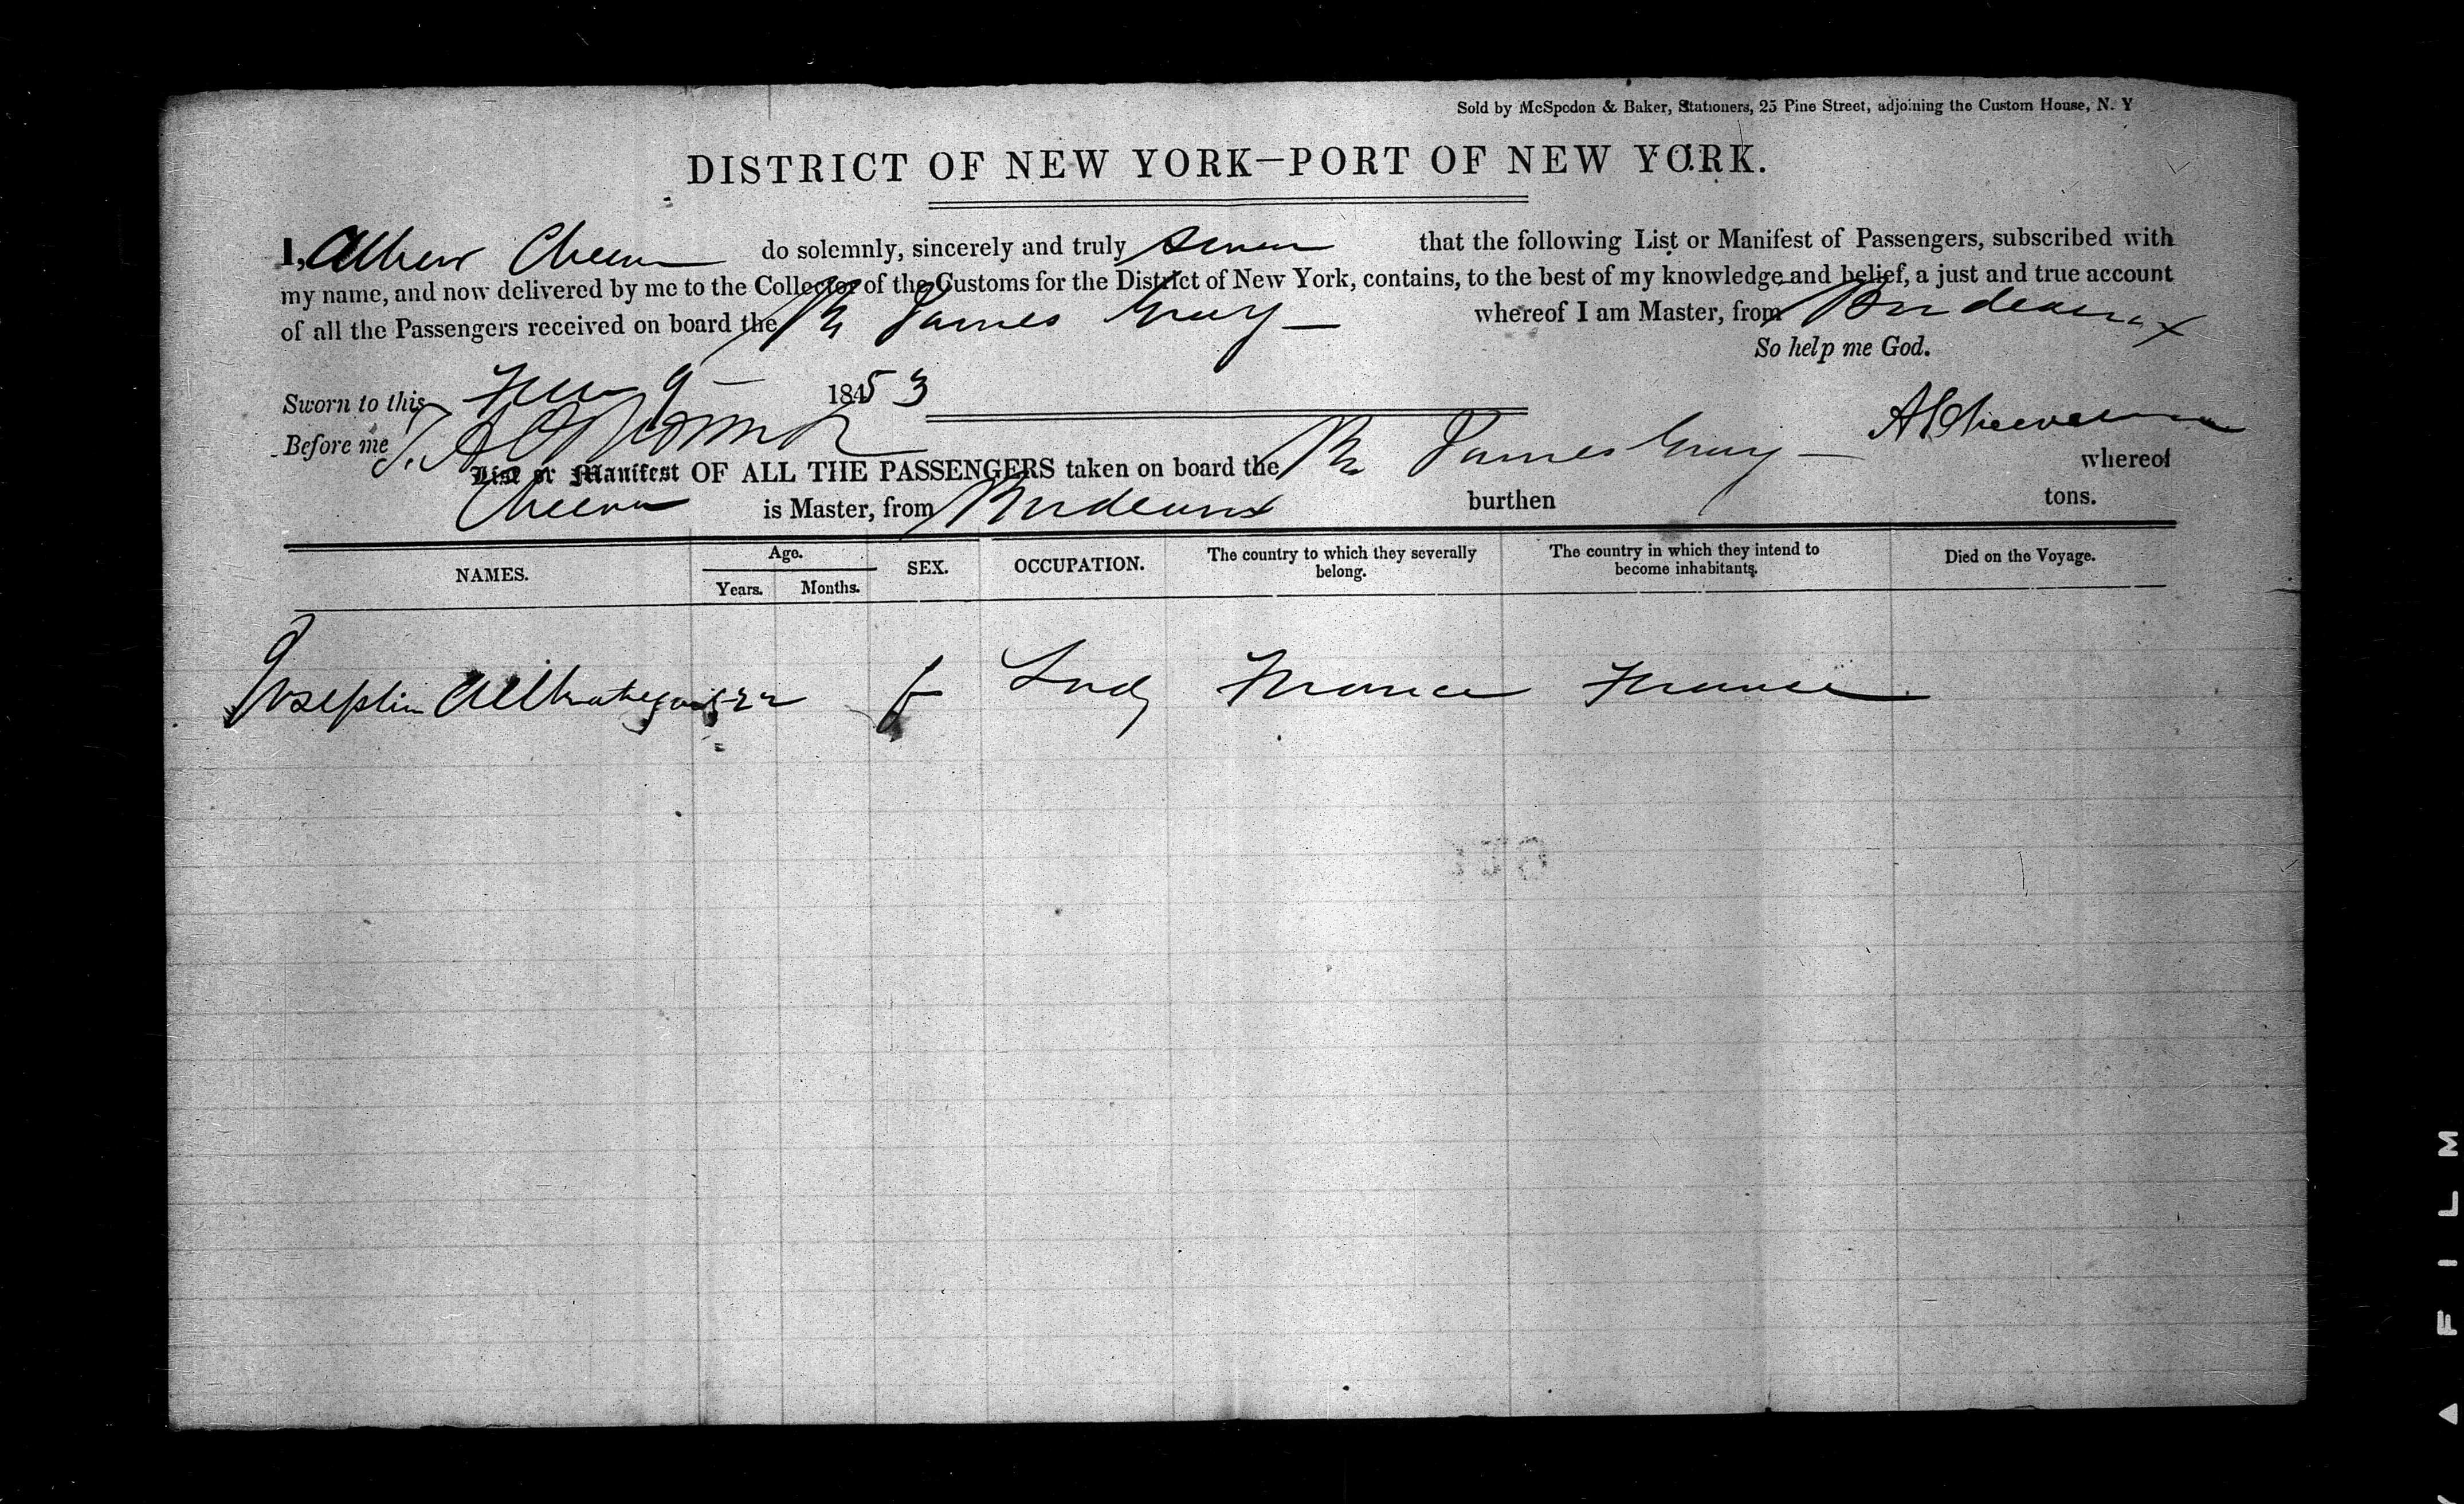 Sold by McSpedon & Baker, Stationers, 25 Pine Street, adjoining the Custom House, N. Y
DISTRICT OF NEW YORK—PORT OF NEW YORK.
I, Albert Cheever do solemnly, sincerely and truly swear that the following List or Manifest of Passengers, subscribed with
my name, and now delivered by me to the Collector of the Customs for the District of New York, contains, to the best of my knowledge and belief, a just and true account
of all the Passengers received on board the James Gray whereof I am Master, from Bordeaux
So help me God.
Sworn to this 9 1853
Before me
List or Manifest OF ALL THE PASSENGERS taken on board the James Gray whereof
Cheever is Master, from Bordeaux burthen tons.
NAMES. Age. SEX. OCCUPATION. The country to which they severally belong. The country in which they intend to become inhabitants. Died on the Voyage.
Years. Months.
Josephin 22 f Lady France France
FILM